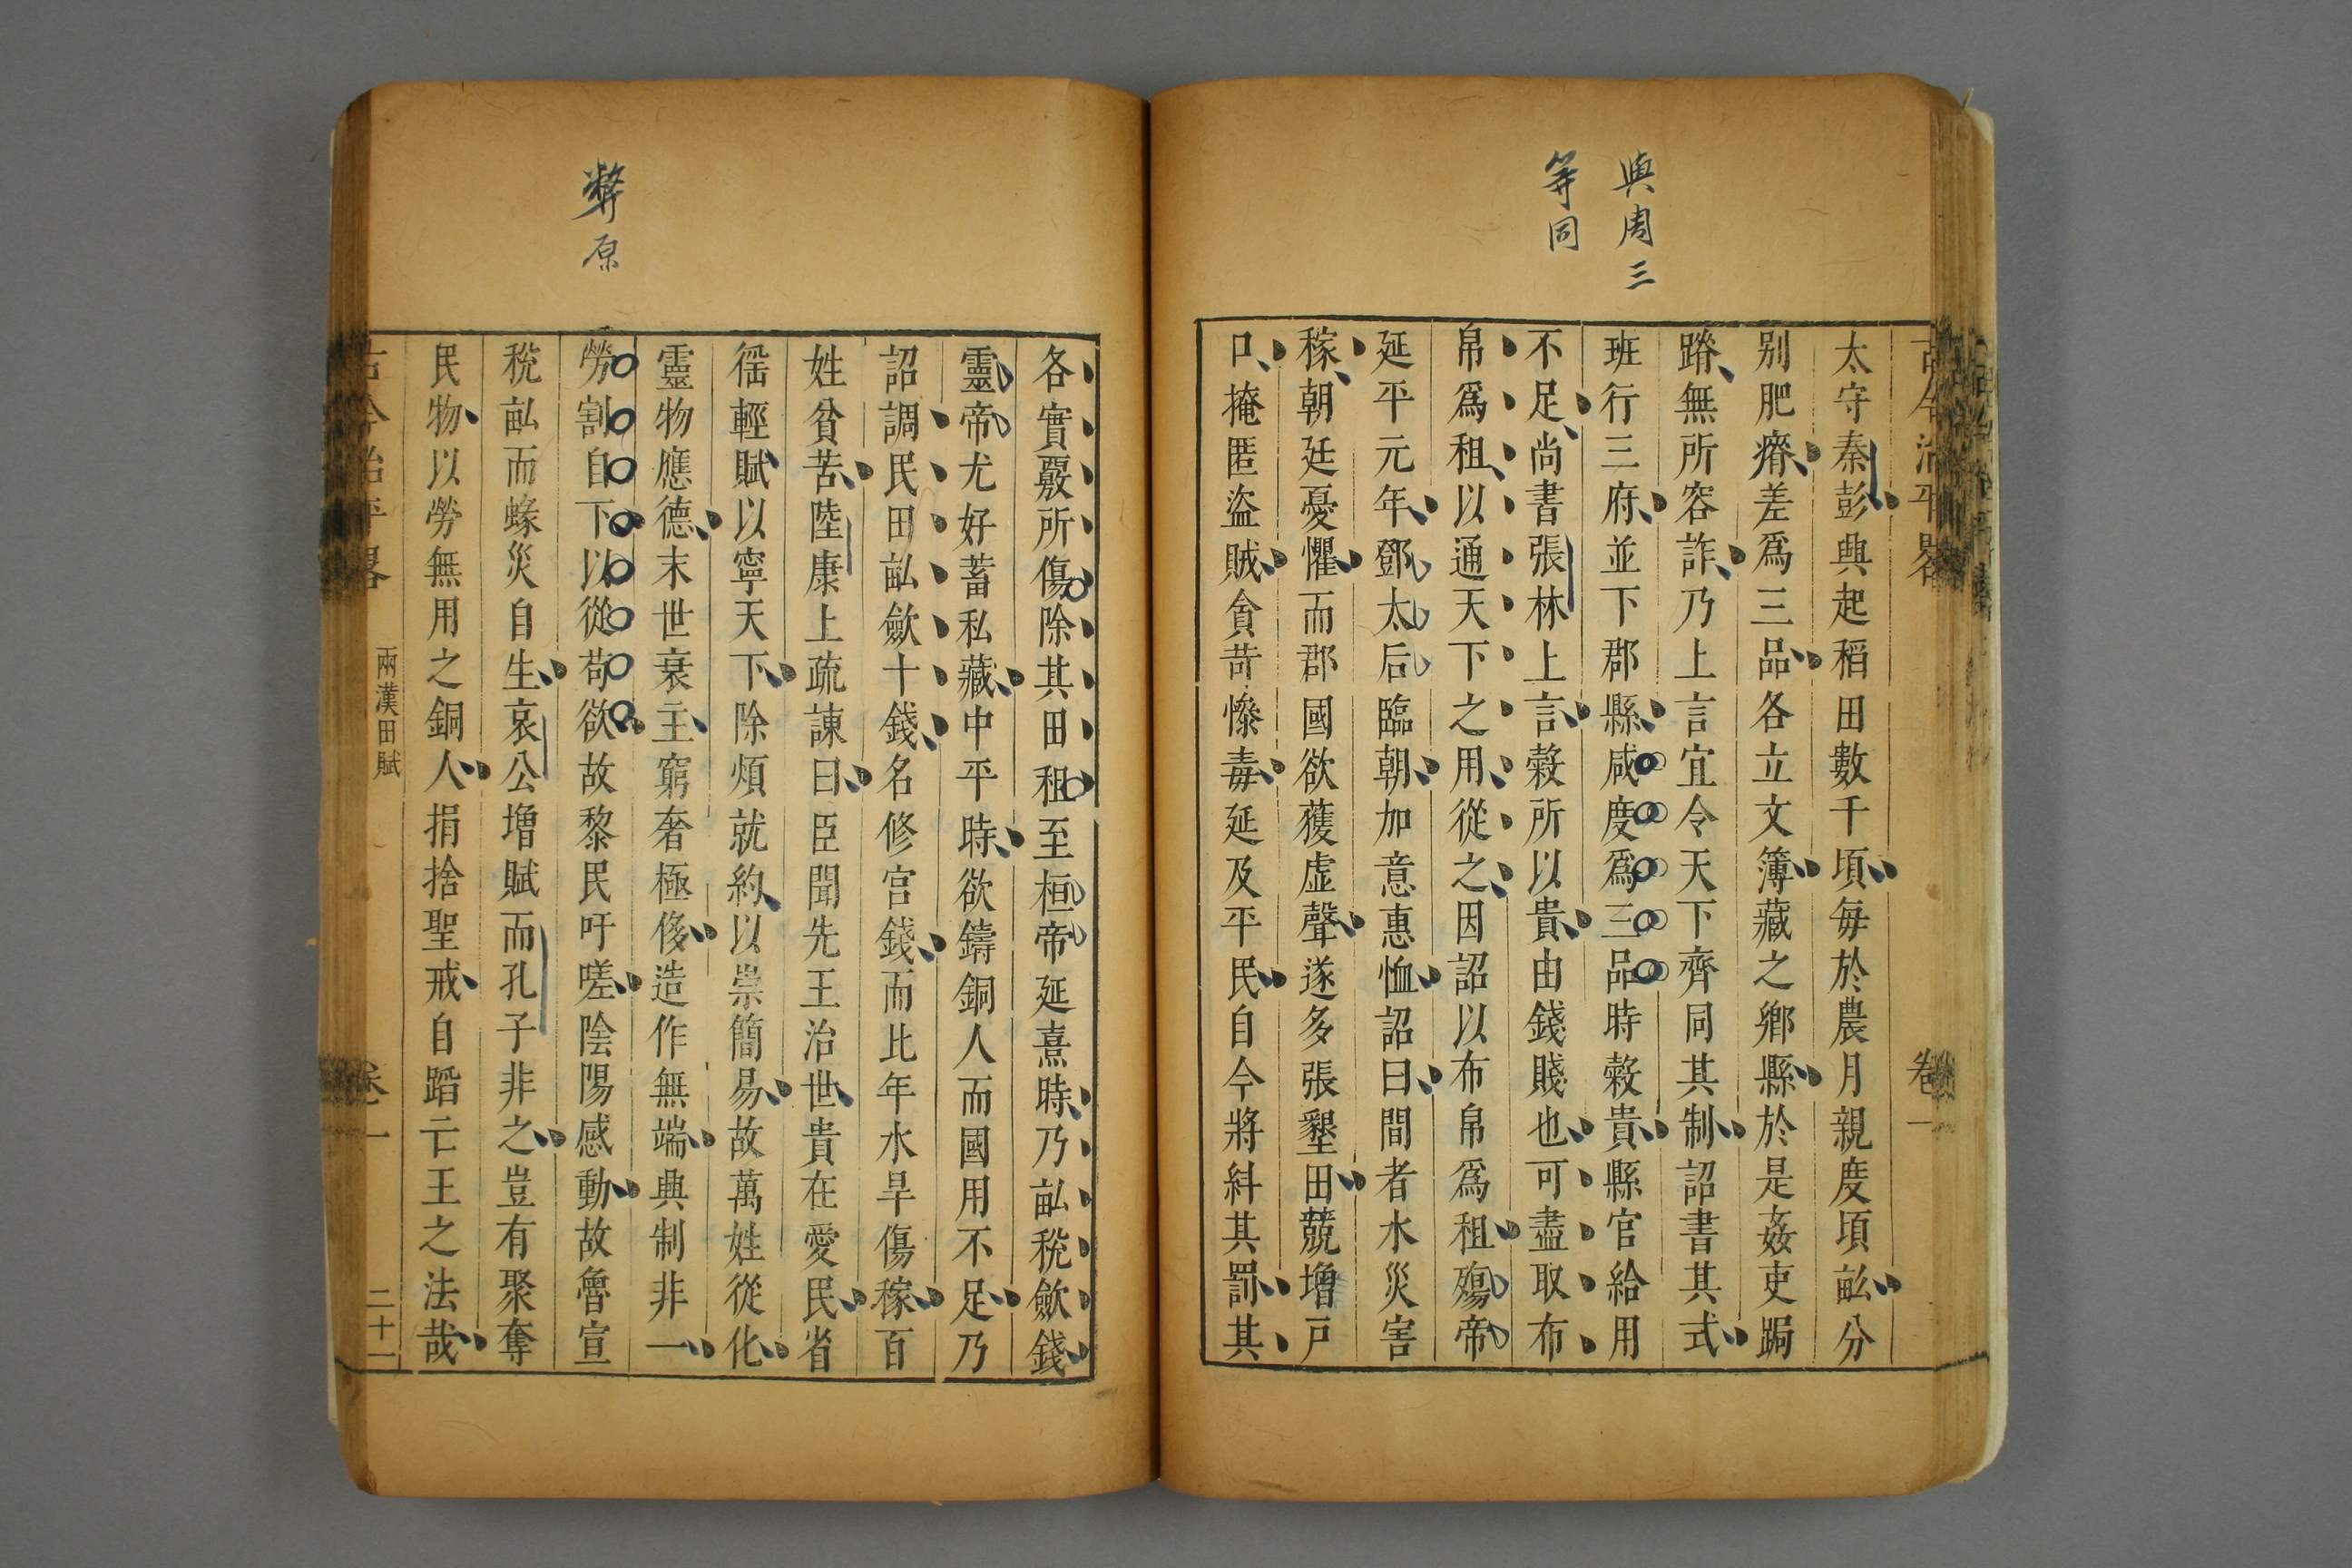 與周三
等同
太守秦彭興起稻田數千頃每於農月親度頃畝分
别肥瘠差爲三品各立文簿藏之鄉縣於是姦吏跼
蹐無所容詐乃上言宜令天下齊同其制詔書其式
班行三府並下郡縣咸度爲三品時穀貴縣官給用
不足尚書張林上言穀所以貴由錢賤也可盡取布
帛爲租以通天下之用從之因詔以布帛爲租殤帝
延平元年鄧太后臨朝加意惠恤詔曰間者水災害
稼朝廷憂懼而郡國欲獲虛聲遂多張墾田競增戸
口掩匿盜賊貪苛慘毒延及平民自今將糾其罰其
古今治平畧
卷一
弊原
各實覈所傷除其田租至桓帝延熹時乃畝稅斂錢
靈帝尤好蓄私藏中平時欲鑄銅人而國用不足乃
詔調民田畝斂十錢名修宮錢而比年水旱傷稼百
姓貧苦陸康上疏諫曰臣聞先王治世貴在愛民省
徭輕賦以寧天下除煩就約以崇簡易故萬姓從化
靈物應德末世衰主窮奢極侈造作無端興制非一
勞割自下以從苟欲故黎民吁嗟陰陽感動故魯宣
稅畝而蝝災自生哀公增賦而孔子非之豈有聚奪
民物以勞無用之銅人捐捨聖戒自蹈亡王之法哉
古今治平畧
兩漢田賦
卷一
二十一